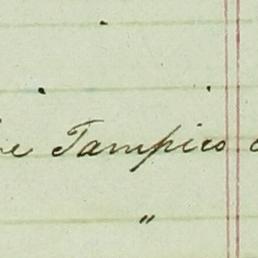 Tampico
"